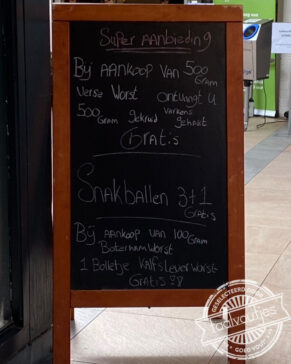 Super AANBieding
Bij AANKOOP VAN 500 GRAM
Verse Worst ontvangt u
500 GRAM gekruid varkens gehakt
Gratis
Snakballen 3+1
Gratis
Bij AANKOOP VAN 100 GRAM
BoterhamWorst
1 Bolletje KAlfsLeverWorst
GRATIS
GESELECTEERD DOOR
taalvoutjes
GOED VOOR